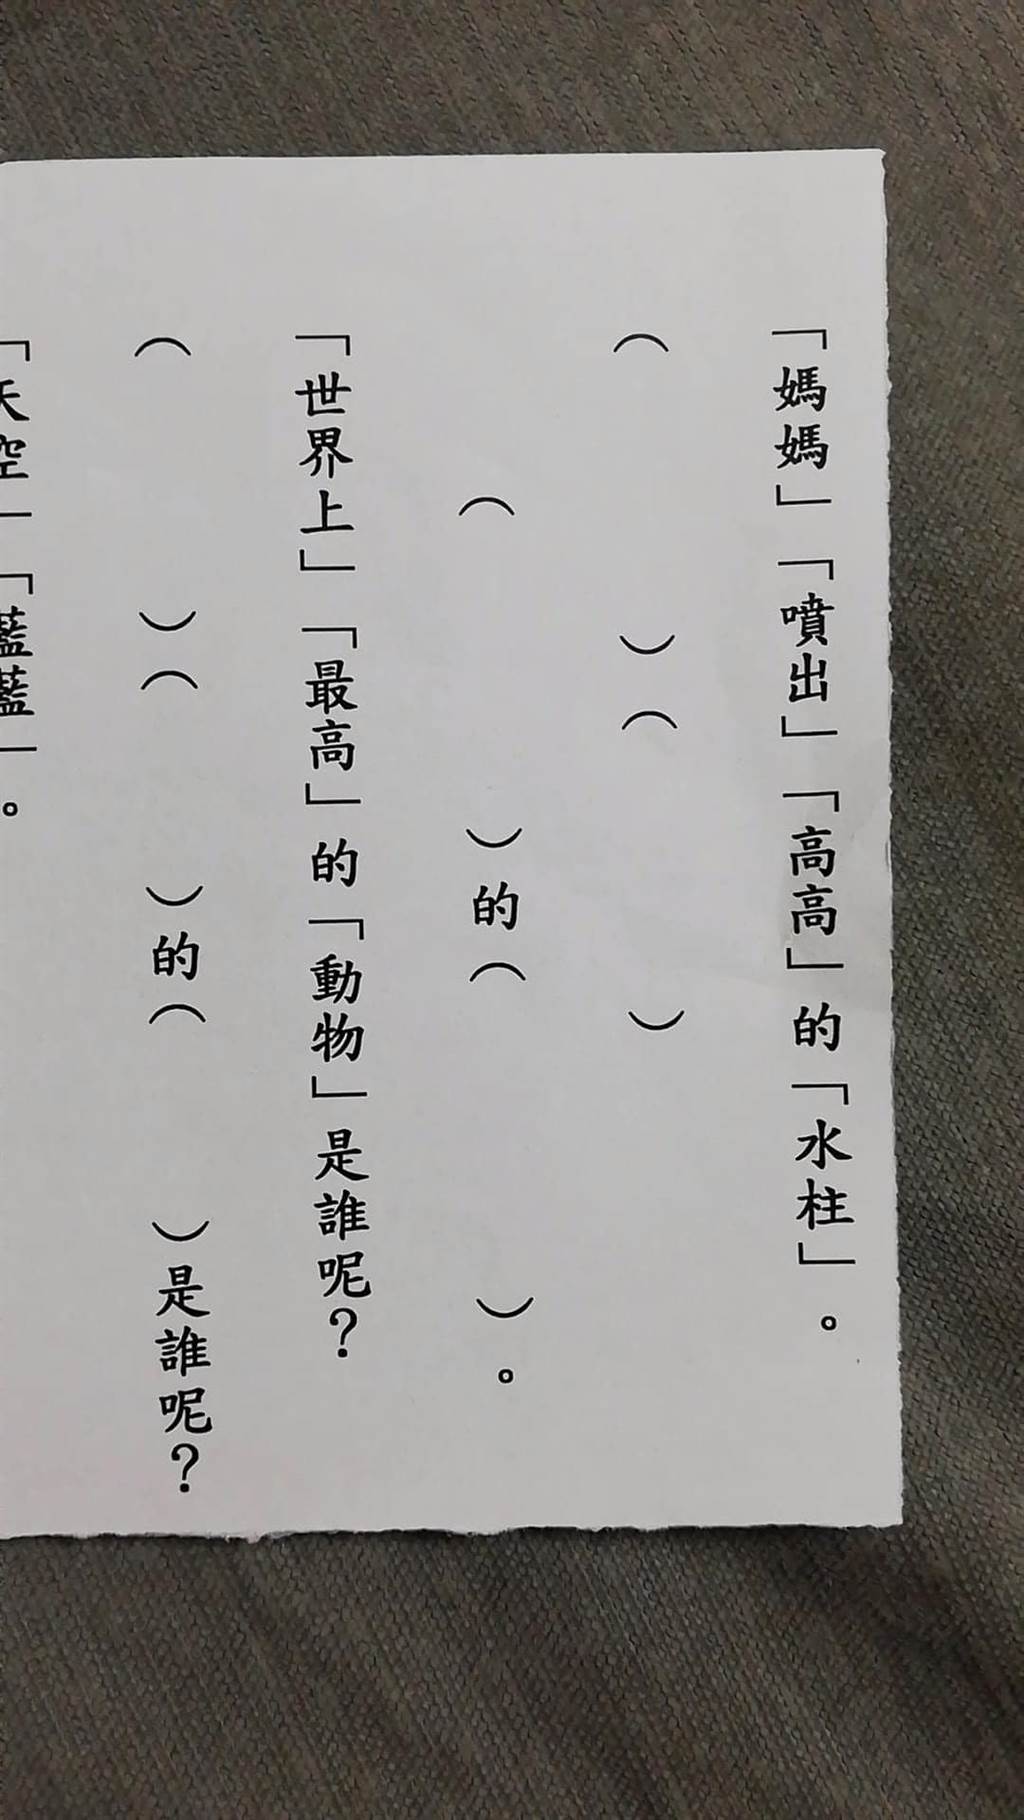 「媽媽」「噴出」「高高」的「水柱」。
（　　　）（　　　）
（　　　）的（　　　）。
「世界上」「最高」的「動物」是誰呢？
（　　　）（　　　）的（　　　）是誰呢？
「天空」「藍藍」。